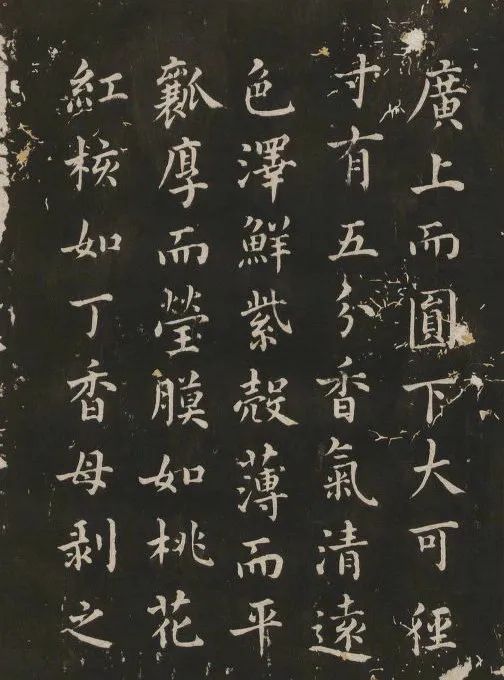 廣上而圓下大可徑
寸有五分香氣清遠
色澤鮮紫殼薄而平
瓤厚而瑩膜如桃花
紅核如丁香母剥之